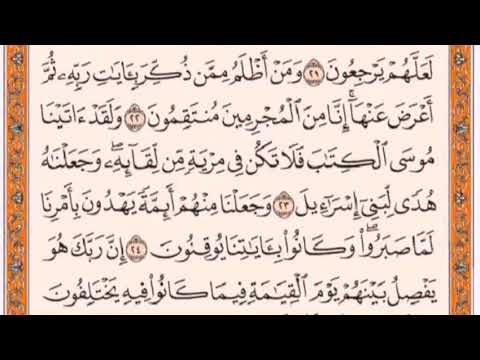 لَعَلَّهُمْ يَرْجِعُونَ ٢١ وَمَنْ أَظْلَمُ مِمَّن ذُكِّرَ بِـَٔايَٰتِ رَبِّهِۦ ثُمَّ
أَعْرَضَ عَنْهَآ ۚ إِنَّا مِنَ ٱلْمُجْرِمِينَ مُنتَقِمُونَ ٢٢ وَلَقَدْ ءَاتَيْنَا
مُوسَى ٱلْكِتَٰبَ فَلَا تَكُن فِى مِرْيَةٍ مِّن لِّقَآئِهِۦ ۖ وَجَعَلْنَٰهُ
هُدًى لِّبَنِىٓ إِسْرَٰٓءِيلَ ٢٣ وَجَعَلْنَا مِنْهُمْ أَئِمَّةً يَهْدُونَ بِأَمْرِنَا
لَمَّا صَبَرُوا۟ ۖ وَكَانُوا۟ بِـَٔايَٰتِنَا يُوقِنُونَ ٢٤ إِنَّ رَبَّكَ هُوَ
يَفْصِلُ بَيْنَهُمْ يَوْمَ ٱلْقِيَٰمَةِ فِيمَا كَانُوا۟ فِيهِ يَخْتَلِفُونَ